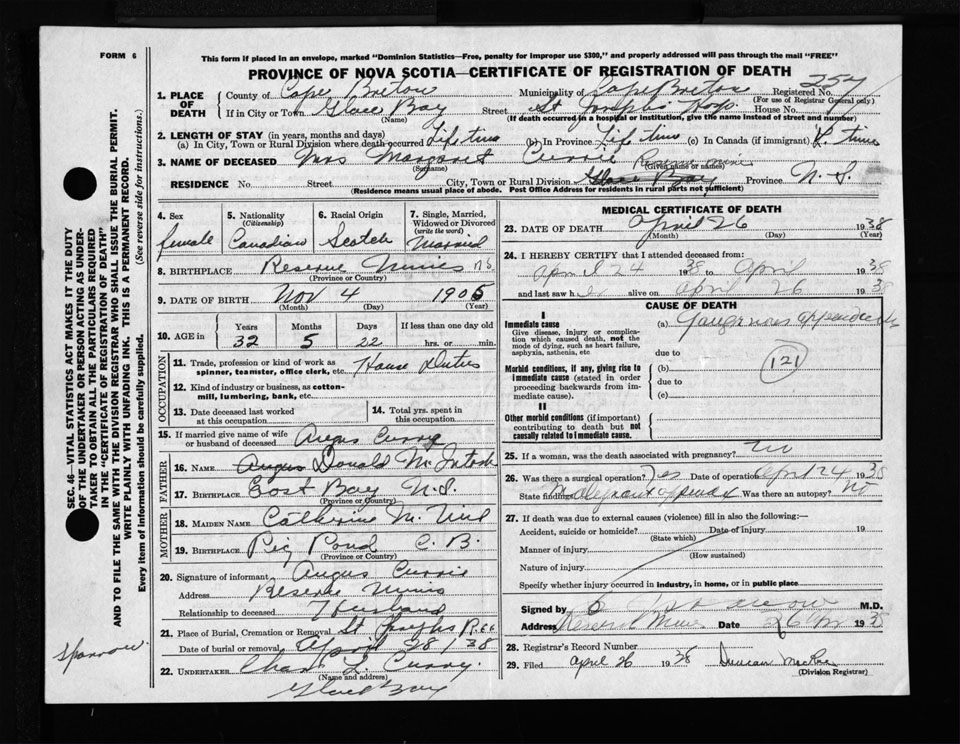 FORM 6
This form if placed in an envelope, marked "Dominion Statistics—Free, penalty for improper use $300," and properly addressed will pass through the mail "FREE"
PROVINCE OF NOVA SCOTIA—CERTIFICATE OF REGISTRATION OF DEATH
1. PLACE OF DEATH
County of Cape Breton Municipality of Cape Breton Registered No. 257
(For use of Registrar General only)
If in City or Town Glace Bay Street St Josephs Hosp. House No.
(Name) (If death occurred in a hospital or institution, give the name instead of street and number)
2. LENGTH OF STAY (in years, months and days)
(a) In City, Town or Rural Division where death occurred Lifetime (b) In Province Life time (c) In Canada (if immigrant) time
3. NAME OF DECEASED Mrs Margaret Currie
(Surname) (Given name or names)
Reserve Mines
RESIDENCE No. Street City, Town or Rural Division Glace Bay Province N. S.
(Residence means usual place of abode. Post Office Address for residents in rural parts not sufficient)
4. Sex female
5. Nationality (Citizenship) Canadian
6. Racial Origin Scotch
7. Single, Married, Widowed or Divorced (write the word) Married
8. BIRTHPLACE Reserve Mines N.S.
(Province or Country)
9. DATE OF BIRTH Nov 4 1905
(Month) (Day) (Year)
10. AGE in Years Months Days If less than one day old
32 5 22 hrs. or min.
OCCUPATION
11. Trade, profession or kind of work as spinner, teamster, office clerk, etc. House Duties
12. Kind of industry or business, as cotton-mill, lumbering, bank, etc.
13. Date deceased last worked at this occupation
14. Total yrs. spent in this occupation
15. If married give name of wife or husband of deceased Angus Curry
FATHER
16. NAME Angus Donald McIntosh
17. BIRTHPLACE East Bay N.S.
(Province or Country)
MOTHER
18. MAIDEN NAME Catherine McNeil
19. BIRTHPLACE Big Pond C. B.
(Province or Country)
20. Signature of informant Angus Currie
Address Reserve Mines
Relationship to deceased Husband
21. Place of Burial, Cremation or Removal St Josephs
Date of burial or removal April 28 / 38
22. UNDERTAKER Chas L. Curry.
(Name and address)
Glace Bay
MEDICAL CERTIFICATE OF DEATH
23. DATE OF DEATH April 26 1938
(Month) (Day) (Year)
24. I HEREBY CERTIFY that I attended deceased from:
April 24 1938 to April 1938
and last saw her alive on April 26 1938
CAUSE OF DEATH
I
Immediate cause
Give disease, injury or complication which caused death, not the mode of dying, such as heart failure, asphyxia, asthenia, etc
(a) Gangrenous appendicitis
due to
Morbid conditions, if any, giving rise to immediate cause (stated in order proceeding backwards from immediate cause).
(b)
121
due to
(c)
II
Other morbid conditions (if important) contributing to death but not causally related to immediate cause.
25. If a woman, was the death associated with pregnancy? no
26. Was there a surgical operation? Yes Date of operation April 24 1938
State findings Was there an autopsy? No
27. If death was due to external causes (violence) fill in also the following:—
Accident, suicide or homicide? Date of Injury 19
(State which)
Manner of injury
(How sustained)
Nature of injury
Specify whether injury occurred in industry, in home, or in public place
Signed by M.D.
Address Reserve Mines Date 26 1938
28. Registrar's Record Number
29. Filed April 26 1938 Duncan MacRae
(Division Registrar)
SEC. 46—VITAL STATISTICS ACT MAKES IT THE DUTY
OF THE UNDERTAKER OR PERSON ACTING AS UNDER-
TAKER TO OBTAIN ALL THE PARTICULARS REQUIRED
IN THE "CERTIFICATE OF REGISTRATION OF DEATH"
AND TO FILE THE SAME WITH THE DIVISION REGISTRAR WHO SHALL ISSUE THE BURIAL PERMIT.
WRITE PLAINLY WITH UNFADING INK. THIS IS A PERMANENT RECORD.
Every item of information should be carefully supplied. (See reverse side for instructions.)
Sparrow